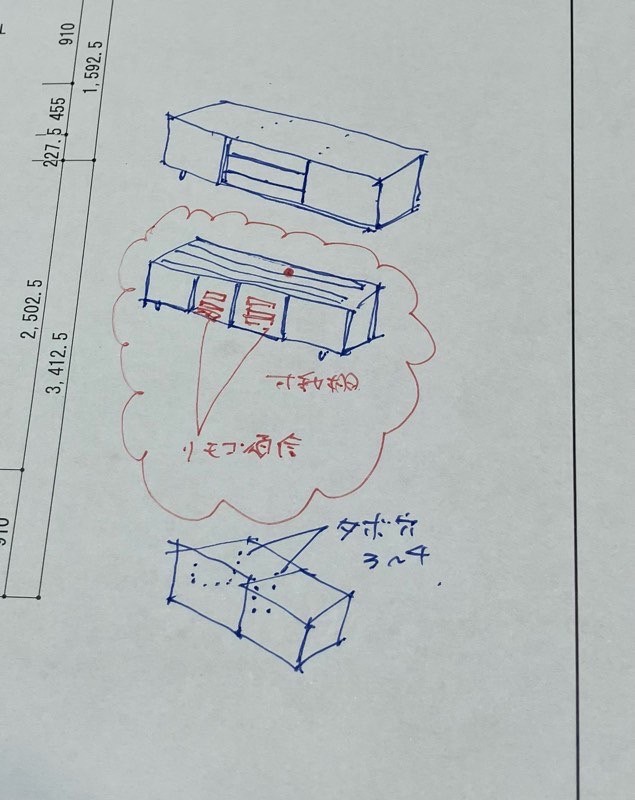 910
1,592.5
455
227.5
2,502.5
3,412.5
910
可動棚
リモコン通信
ダボ穴
3~4